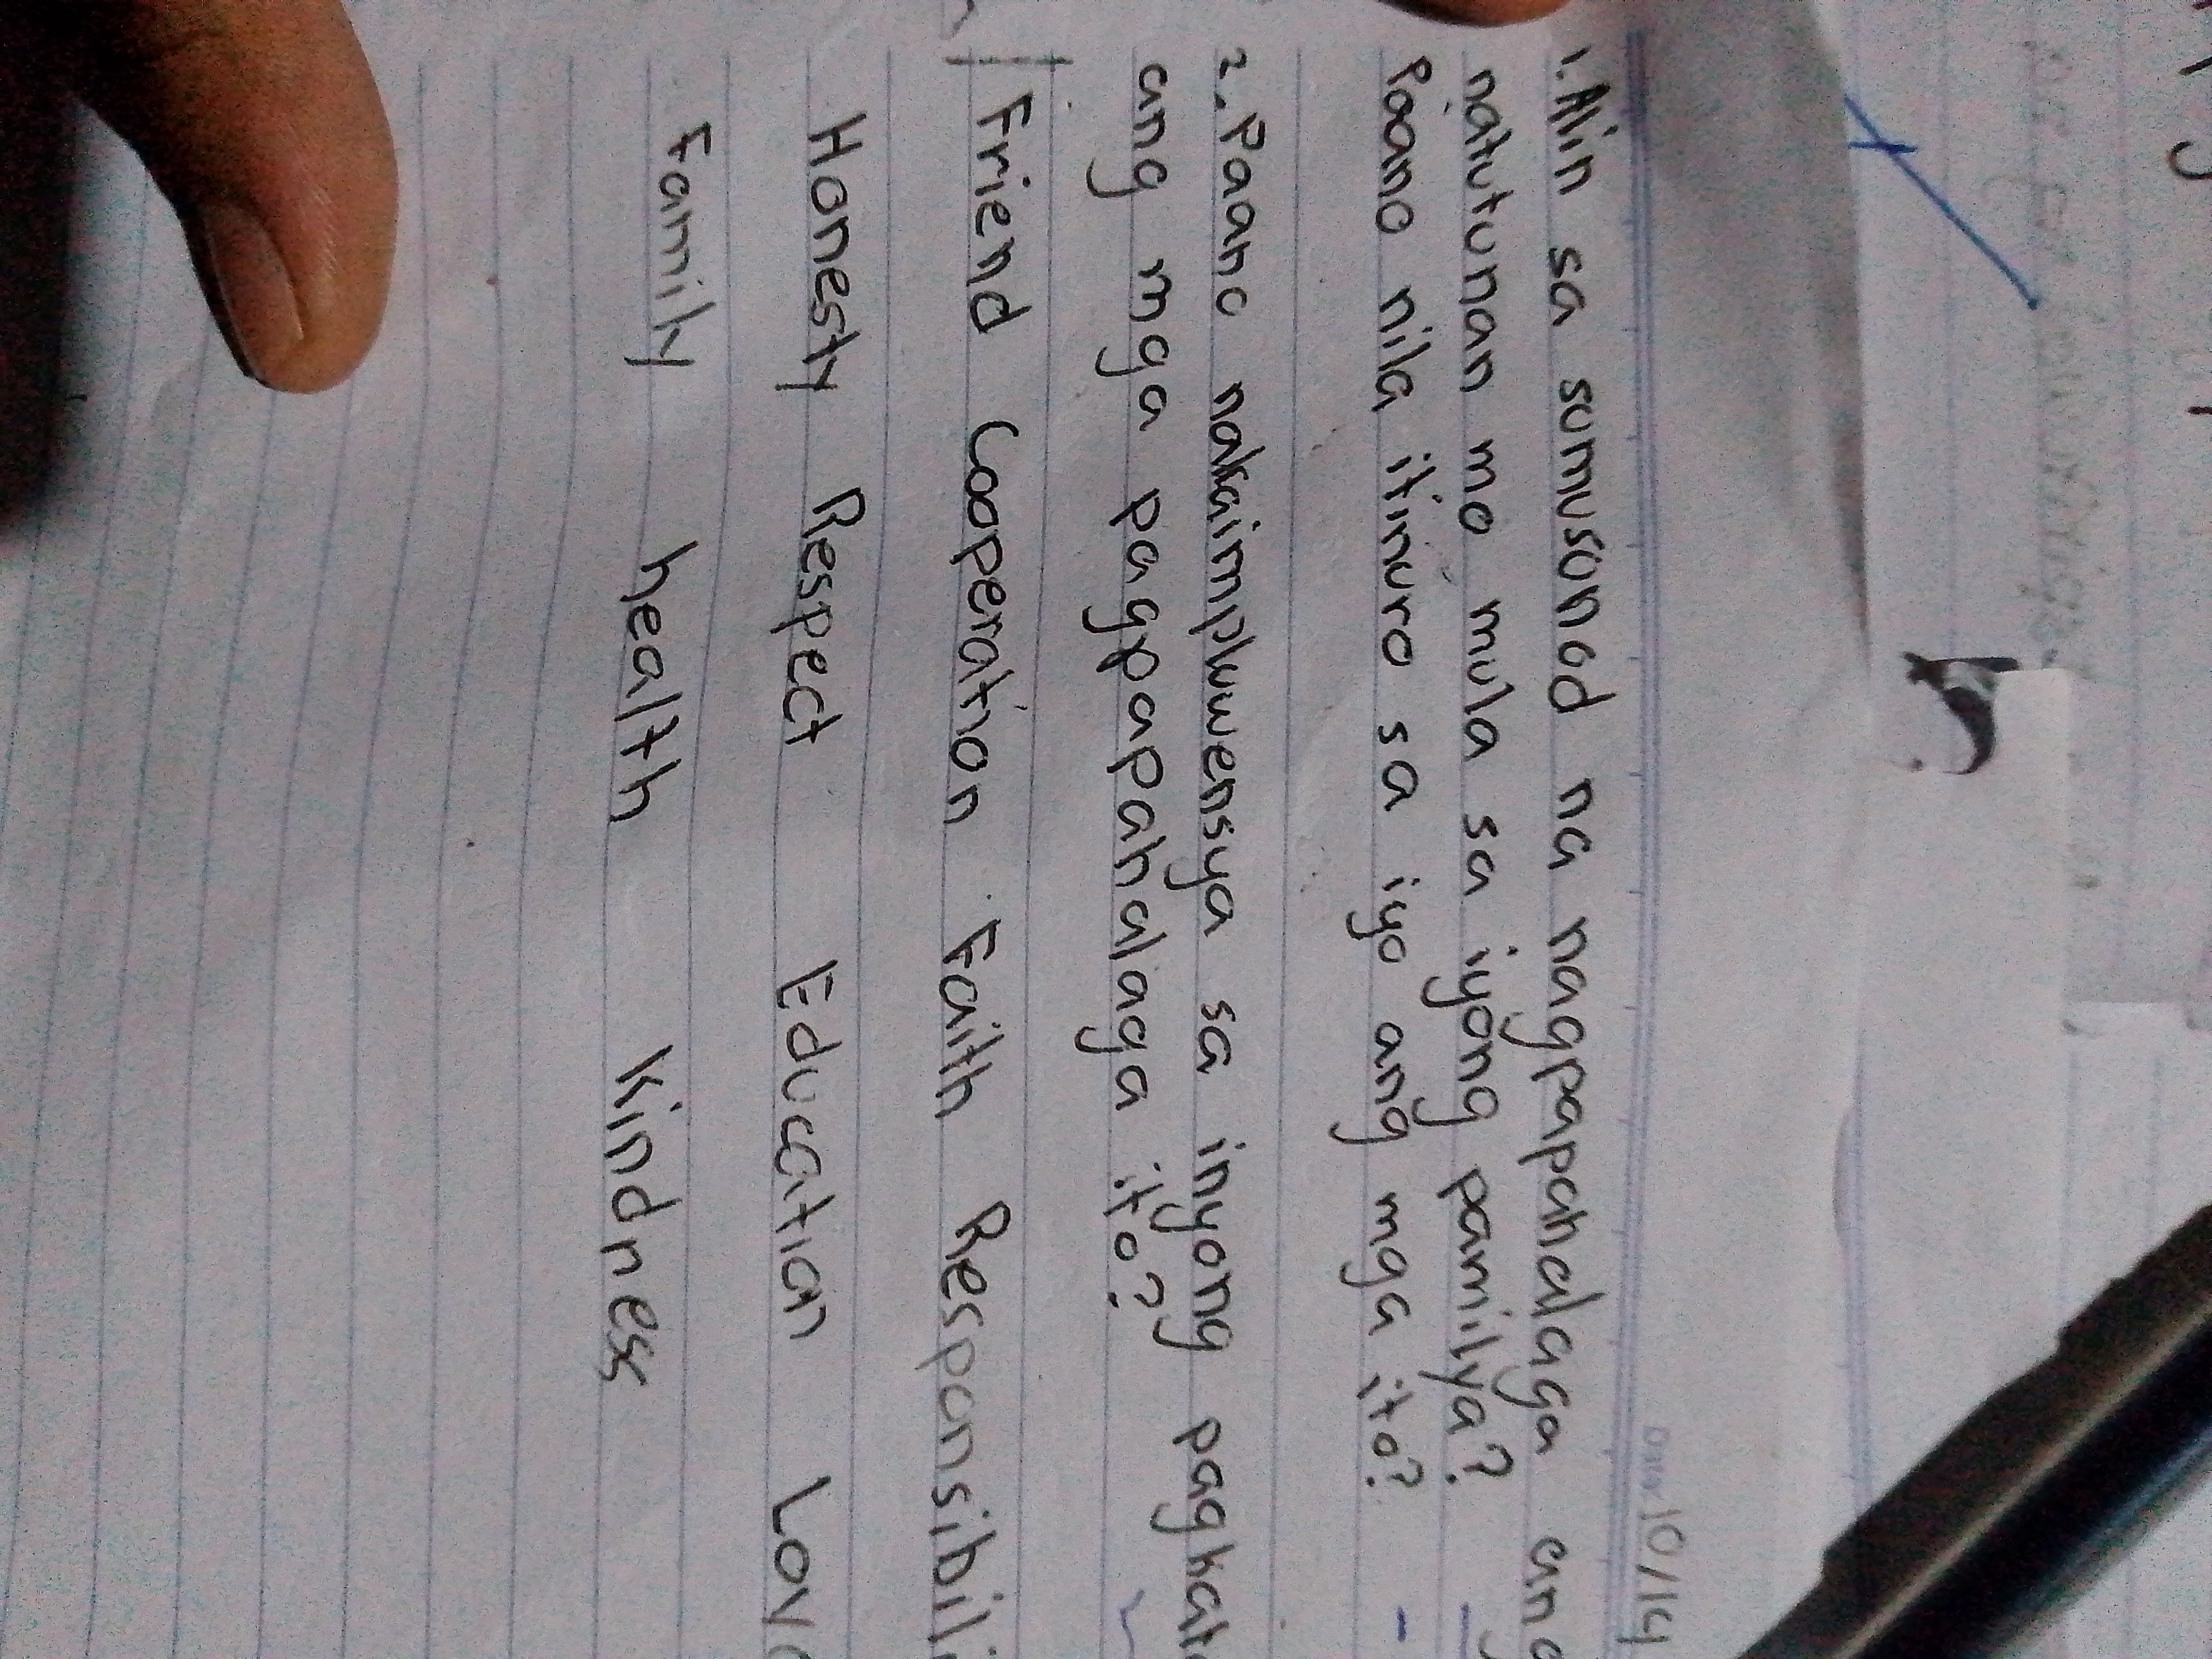 Date 10/14
1. Alin sa sumusonod na nagpapahalaga ang
natutunan mo mula sa iyong pamilya?
Paano nila itinuro sa iyo ang mga ito?
2. Paano nakaimpluwensya sa inyong
ang mga pagpapahalaga ito?
Friend Cooperation Faith
Honesty Respect Education
Family health Kindness